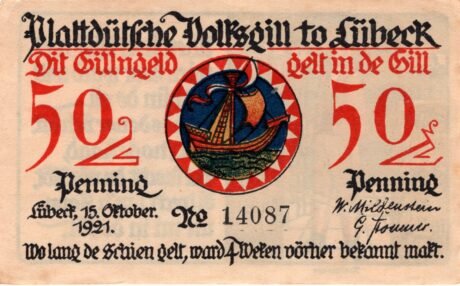 Plattdütsche Volksgill to Lübeck
Dit Gillngeld gelt in de Gill
50 50
Penning Penning
Lübeck, 15. Oktober. 1921.
No 14087
W. Mildenstein
Wo lang de Schien gelt, ward 4 Weken vörher bekannt makt.